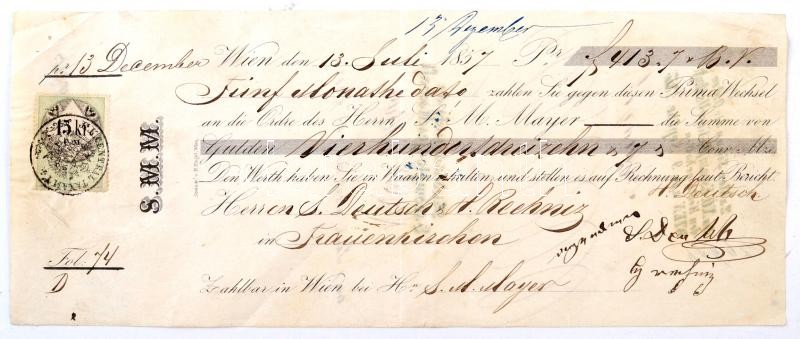 13 Dezember
pr 13 December Wien den 13. Juli 1857 Pr f 413.7 x B.V.
Fünf Monathe dato zahlen Sie gegen diesen Prima Wechsel
an die Ordre des Herrn S. M. Mayer die Summe von
Gulden Vierhundertdreizehn 7 x Conv. Mze.
Den Werth haben Sie in Waaren erhalten und stellen es auf Rechnung laut Bericht.
Herren S. Deutsch & H. Rechniz
in Frauenkirchen
Zahlbar in Wien bei Hr S. M. Mayer
H. Deutsch
S. M. M.
15 Kr
C.M.
Fol. 74
D